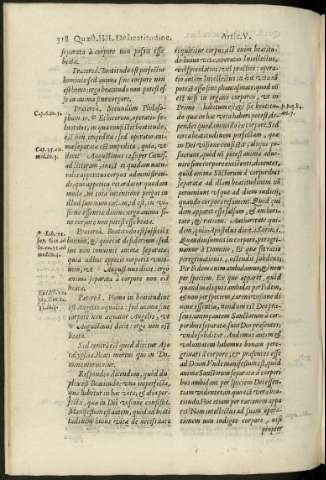 318 Quæst. IIII. De beatitudine. Artic. V.
separata à corpore non possit esse
beata.
Præterea, Beatitudo est perfectio
hominis: sed anima sine corpore non
est homo: ergo beatitudo non potest esse
in anima sine corpore.
Præterea, Secundum Philoso-
phum in
beatitudo, in qua consistit beatitudo,
est non impedita: sed operatio ani-
mæ separatæ est impedita, quia, ut
dicit Augustinus
ad litteram, inest ei quidam naturalis
appetitus corpus administrandi:
quo appetitu retardatur quodam
modo, ne tota intentione pergat in
illud summum cælum, id est, in vi-
sionem essentiæ divinæ: ergo anima si-
ne corpore non potest esse beata.
Præterea, Beatitudo est sufficiens
bonum, & quietat desiderium: sed
hoc non convenit animæ separatæ:
quia adhuc appetit corporis unio-
nem, ut Augustinus dicit: ergo
anima separata à corpore non est
beata.
Præterea, Homo in beatitudine
est Angelis æqualis: sed anima sine
corpore non æquatur Angelis, ut
Augustinus dicit: ergo non est
beata.
Sed contra est quod dicitur Apo-
calypsis, Beati mortui qui in Do-
mino moriuntur.
Respondeo dicendum, quòd du-
plex est Beatitudo: una imperfecta,
quæ habetur in hac vita, & alia per-
fecta, quæ in Dei visione consistit.
Manifestum est autem, quòd ad beati-
tudinem huius vitæ de necessitate
requiritur corpus: est enim beatitudo
huius vitæ operatio intellectus,
vel speculativi, vel practici: opera-
tio autem intellectus in hac vita non
potest esse sine phantasmate, quod non
est nisi in organo corporeo, ut in
Primo habitum est: & sic beatitudo,
quæ in hac vita haberi potest, de-
pendet quodammodo ex corpore. Sed
circa beatitudinem perfectam, quæ
in Dei visione consistit, aliqui po-
suerunt, quòd non potest animæ adve-
nire sine corpore existenti: dicentes,
quòd animæ Sanctorum à corporibus
separatæ ad illam beatitudinem non
perveniunt usque ad diem iudicij,
quando corpora resument. Quod qui-
dem apparet esse falsum, & authori-
tate, & ratione. Authoritate qui-
dem, quia Apostolus dicit
Quandiu sumus in corpore, peregri-
namur à Domino. Et quæ sit ratio
peregrinationis, ostendit subdens:
Per fidem enim ambulamus, & non
per speciem. Ex quo apparet, quòd
quandiu aliquis ambulat per fidem,
& non per speciem, carens visione di-
vinæ essentiæ, nondum est Deo præ-
sens: animæ autem Sanctorum à cor-
poribus separatæ sunt Deo præsentes:
unde subditur, Audemus autem &
voluntatem habemus bonam pere-
grinari à corpore, & præsentes esse
ad Deum. Unde manifestum est, quòd
animæ Sanctorum separatæ à corpori-
bus ambulant per speciem Dei essen-
tiam videntes, in quo est vera bea-
titudo. Hoc etiam per rationem appa-
ret. Nam intellectus ad suam opera-
tionem non indiget corpore, nisi
propter